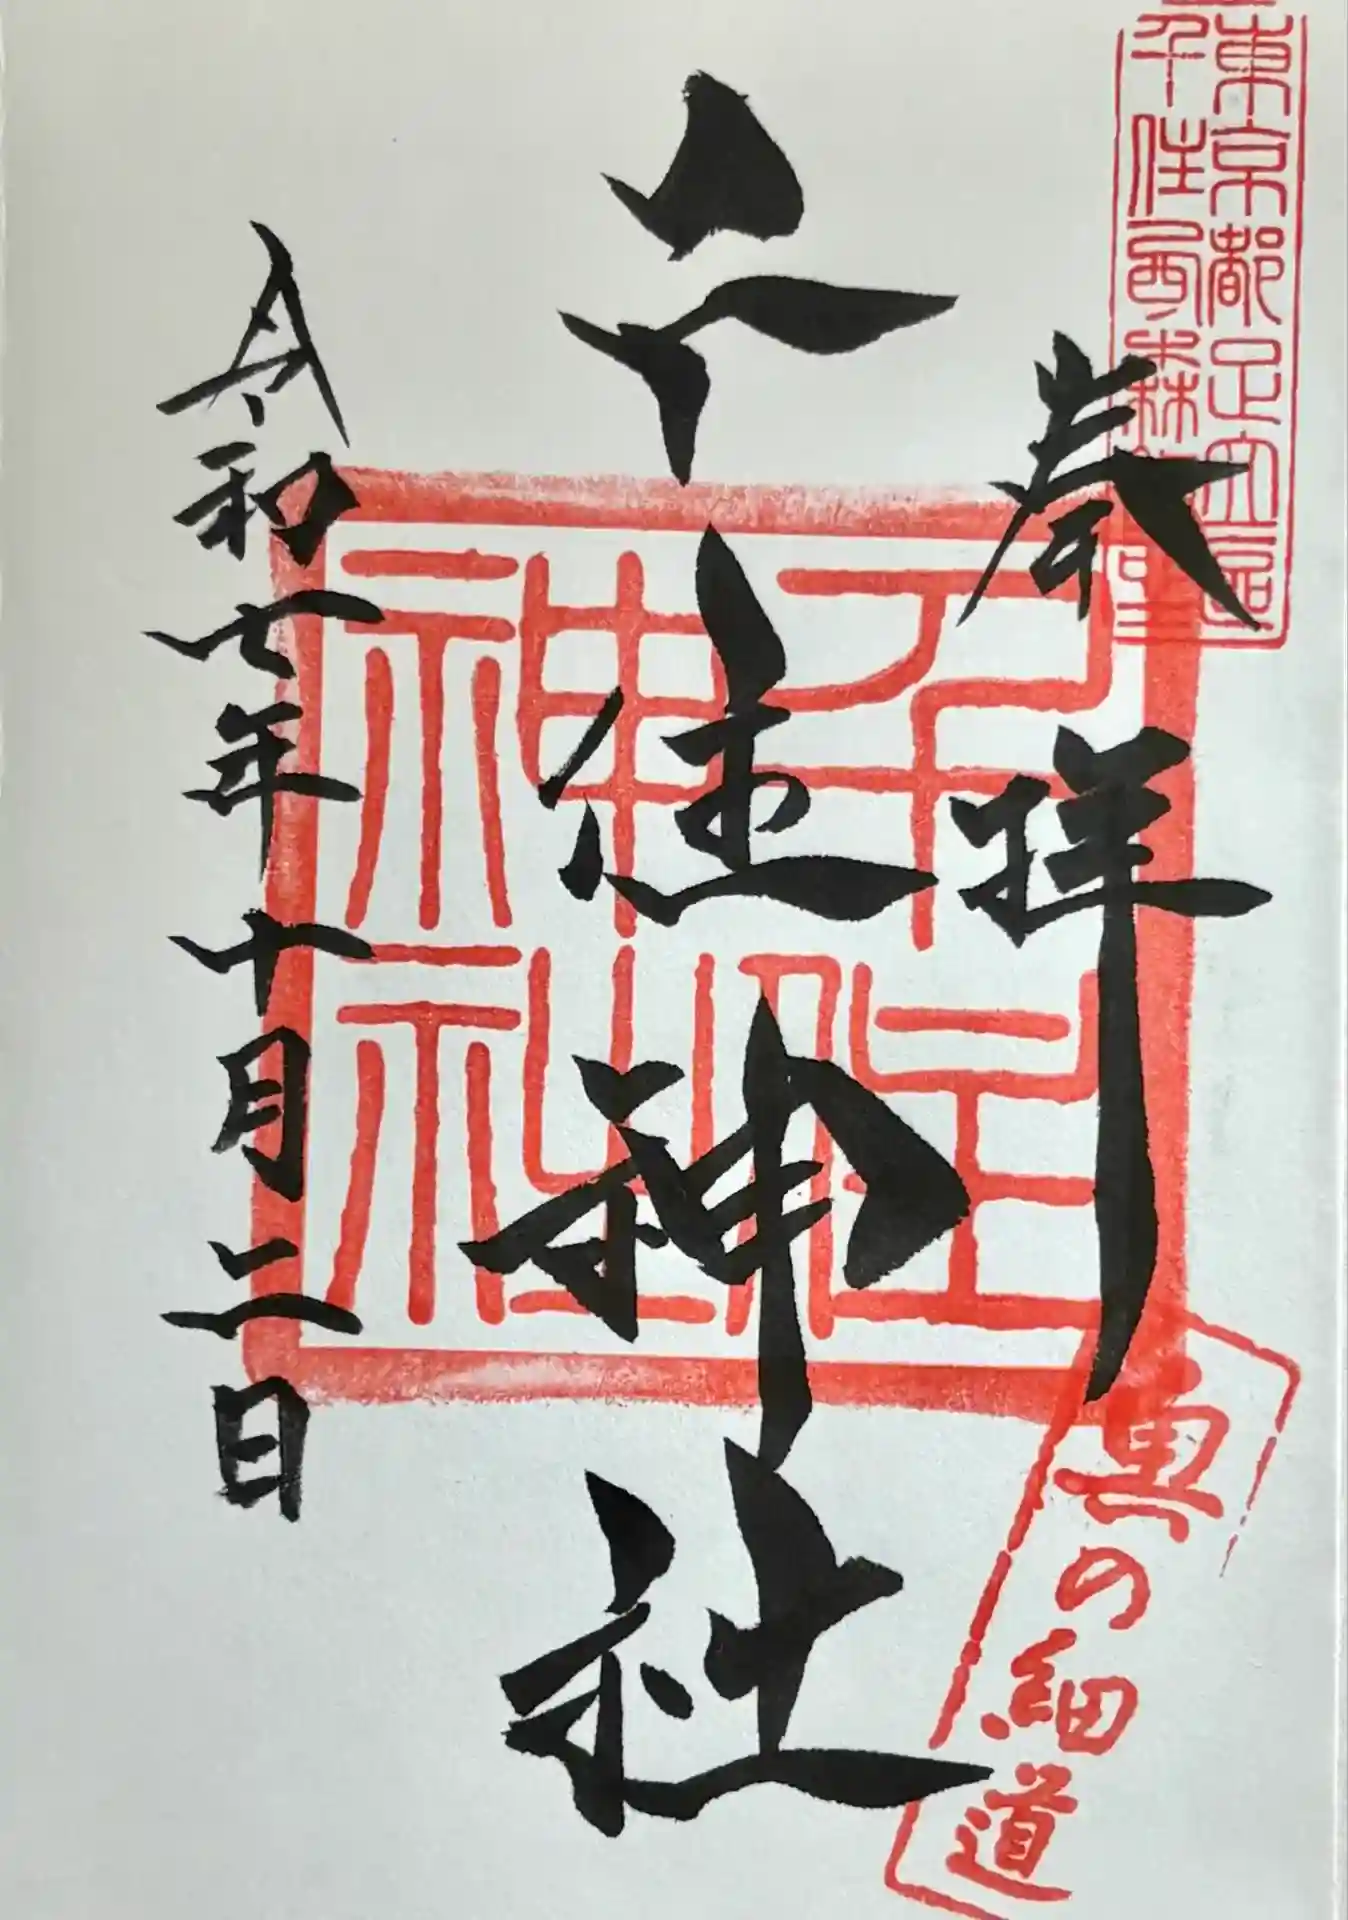 東京都足立區
千住西森
奉拝
千住神社
千住
神社
令和七年十月二日
奥の細道